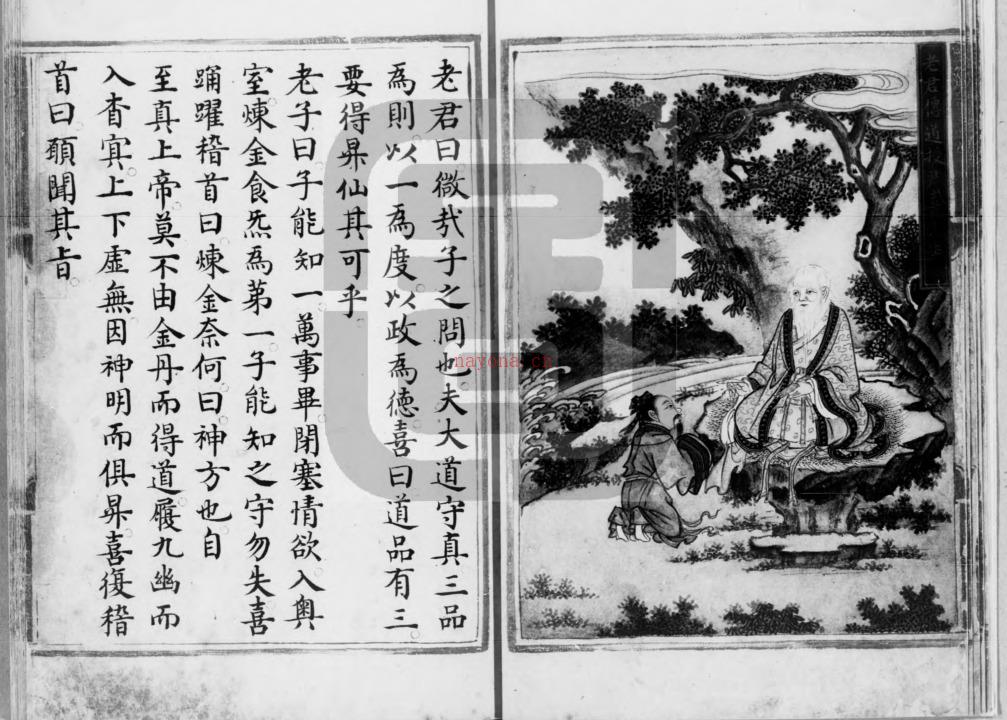 老君傳道
老君曰微㢤子之問也夫大道守真三品
為則以一為度以政為徳喜曰道品有三
要得昇仙其可乎
老子曰子能知一萬事畢閉塞情欲入奥
室煉金食炁為第一子能知之守勿失喜
踊躍稽首曰煉金奈何曰神方也自
至真上帝莫不由金丹而得道履九幽而
入杳冥上下虛無因神明而俱昇喜復稽
首曰願聞其旨
nayona.cn